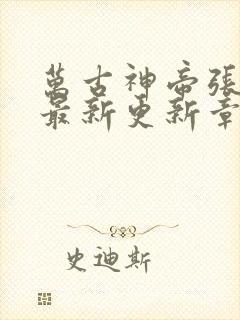 萬古神帝張
最新更新章
史迪斯